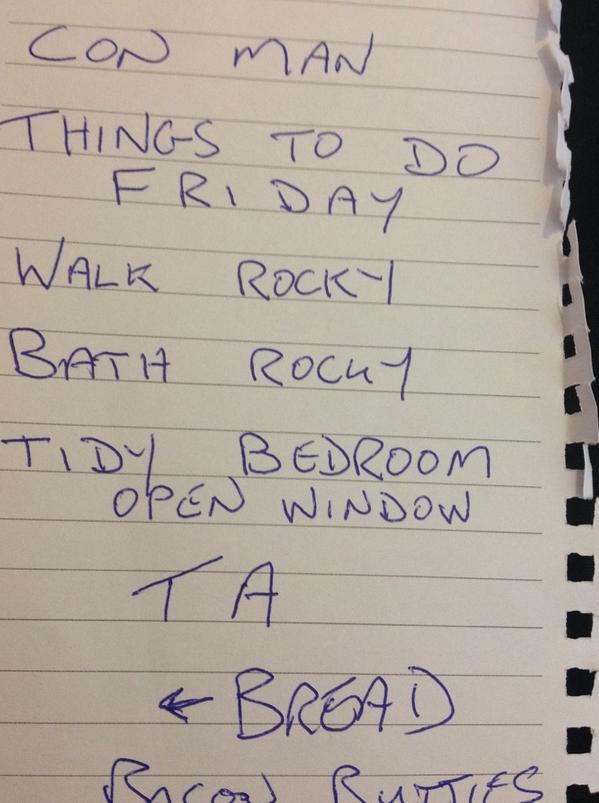 CON MAN
THINGS TO DO
FRIDAY
WALK ROCKY
BATH ROCKY
TIDY BEDROOM
OPEN WINDOW
TA
← BREAD
BACON BUTTIES